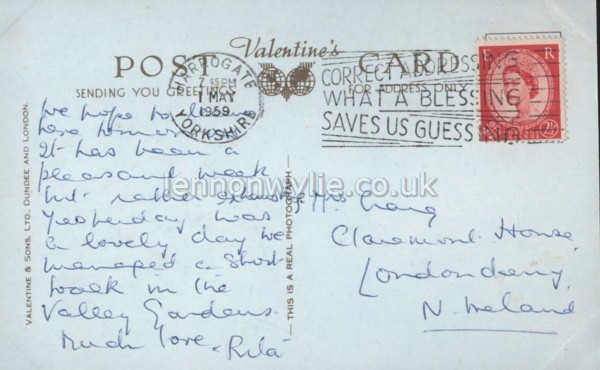 Valentine's
POST CARD
SENDING YOU GREETINGS
FOR ADDRESS ONLY
HARROGATE
7 45 PM
1 MAY
1959
YORKSHIRE
CORRECT ADDRESSING
WHAT A BLESSING
SAVES US GUESSING
E R
2½
VALENTINE & SONS, LTD., DUNDEE AND LONDON.
THIS IS A REAL PHOTOGRAPH
We hope to leave
here
It has been a
pleasant week
but rather
Yesterday was
a lovely day we
managed a short
walk in the
Valley Gardens.
Much love, Rita
Mrs Craig
Claremont House
Londonderry
N. Ireland
lennonwylie.co.uk